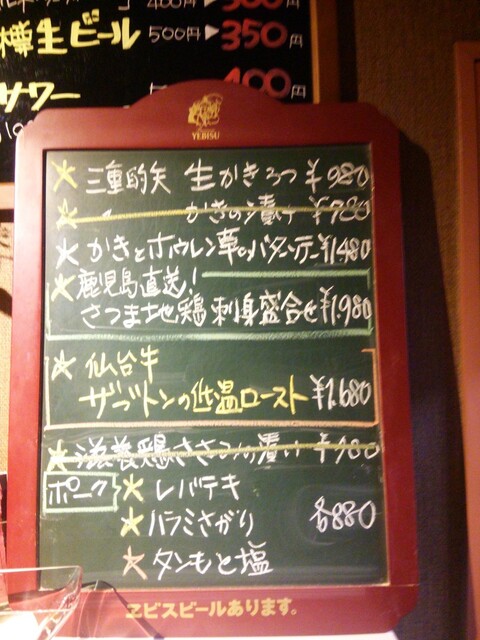 400円▶300円
樽生ビール 500円▶350円
サワー 400円
YEBISU
★三重的矢 生かき3つ ¥980
★ かきの漬け ¥780
★かきとホウレン草のバターソテー ¥1480
★鹿児島直送!
さつま地鶏 刺身盛合せ ¥1,980
★仙台牛
ザブトンの低温ロースト ¥1,680
★滋養鶏ささみの漬け ¥980
ポーク ★レバテキ
★ハラミさがり 各880
★タンもと塩
ヱビスビールあります。